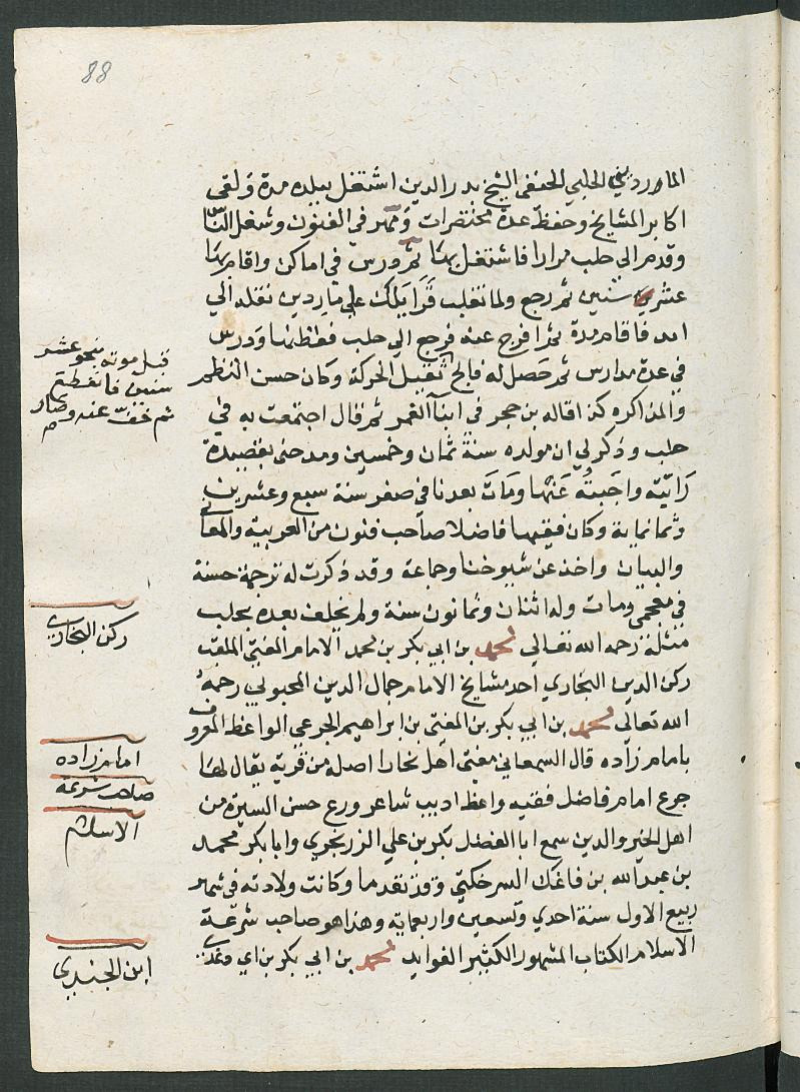 88
المارديني الحلبي الحنفي الشيخ بدر الدين اشتغل ببلده مدة ولقي
اكابر المشايخ وحفظ عدة مختصرات ومهر في الفنون وشغل الناس
وقدم الى حلب مرارا فاشتغل بها ثم درس في اماكن واقام بها
عشر سنين ثم رجع ولما تغلب قرايلك على ماردين نقله الي
امد فاقام مدة ثم افرج عنه فرجع الي حلب فقطنها ودرس
في عدة مدارس ثم حصل له فالج ثقيل الحركة وكان حسن النظم
والمذاكره كذا قاله بن حجر في ابنآ الغمر ثم قال اجتمعت به في
حلب وذكر لي ان مولده سنة ثمان وخمسين ومدحني بقصيدة
رائية واجبته عنها ومات بعدنا في صفر سنة سبع وعشرين
وثمانماية وكان فقيها فاضلا صاحب فنون من العربية والمعاني
والبيان واخذ عن شيوخنا وجماعة وقد ذكرت له ترجمة حسنة
في معجمي ومات وله اثنان وثمانون سنة ولم يخلف بعده بحلب
مثله رحمه الله تعالي محمد بن ابي بكر بن محمد الامام المفتي الملقب
ركن الدين البخاري احد مشايخ الامام جمال الدين المحبوبي رحمه
الله تعالى محمد بن ابي بكر بن المفتي بن ابراهيم الجرعي الواعظ المعروف
بامام زاده قال السمعاني مفتي اهل بخارا اصله من قرية يقال لها
جرع امام فاضل فقيه واعظ اديب شاعر ورع حسن السيرة من
اهل الخير والدين سمع ابا الفضل بكر بن علي الزرنجري وابا بكر محمد
بن عبد الله بن فاغك السرخكتي وقد تقدما وكانت ولادته في شهر
ربيع الاول سنة احدي وتسعين واربعماية وهذا هو صاحب شرعة
الاسلام الكتاب المشهور الكثير الفوايد محمد بن ابي بكر بن اي
قبل موته بنحو عشر
سنين فانقطع
ثم خف عنه وصار
ركن البخاري
امام زاده
صاحب شرعة
الاسلام
ابن الجنيدي